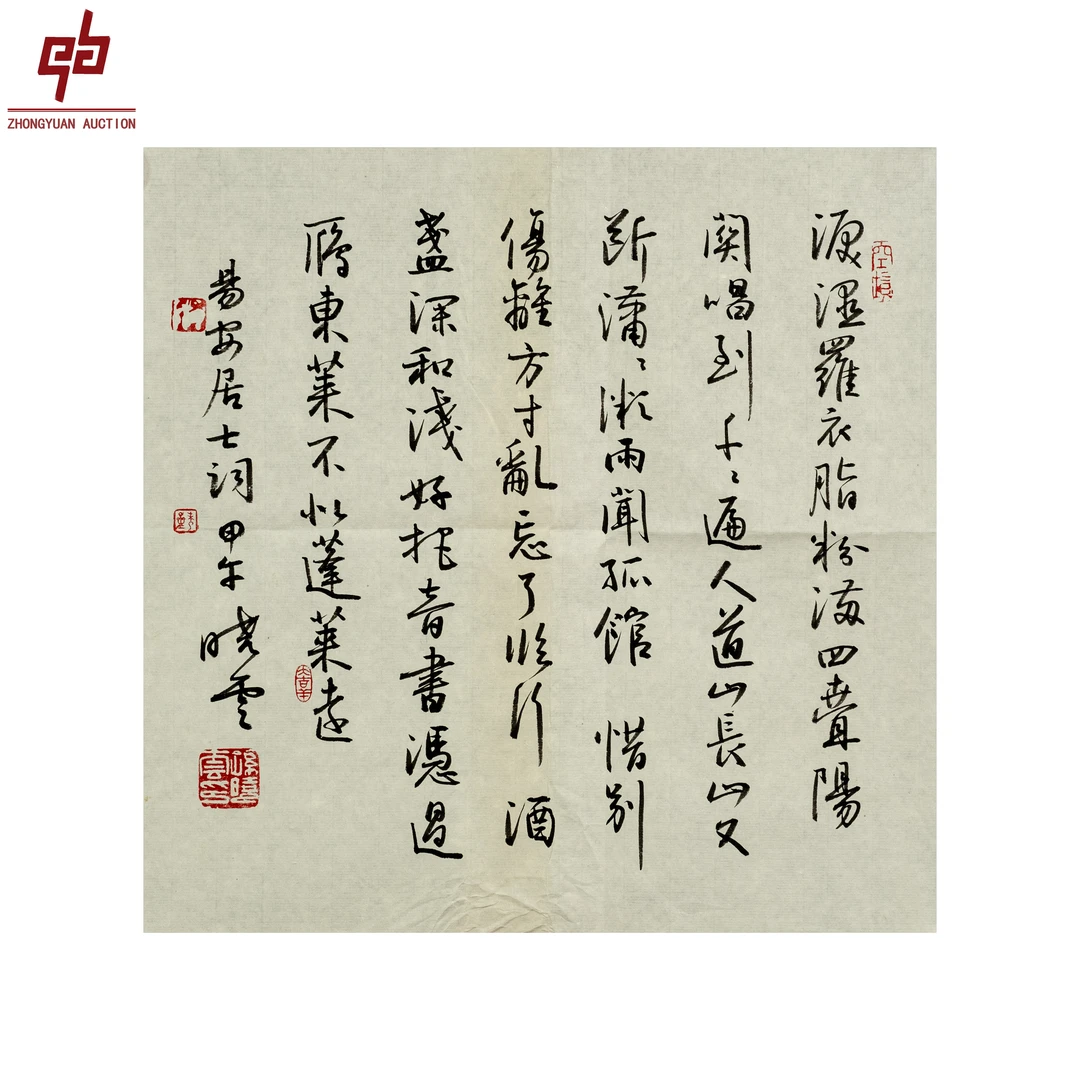 ZHONGYUAN AUCTION
淚溼羅衣脂粉滿四疊陽
關唱到千〻遍人道山長山又
斷瀟〻微雨聞孤館 惜別
傷離方寸亂忘了臨行 酒
盞深和淺好把音書憑過
鴈東萊不似蓬萊遠
易安居士詞甲午曉雲
大吉羊
孫曉雲印